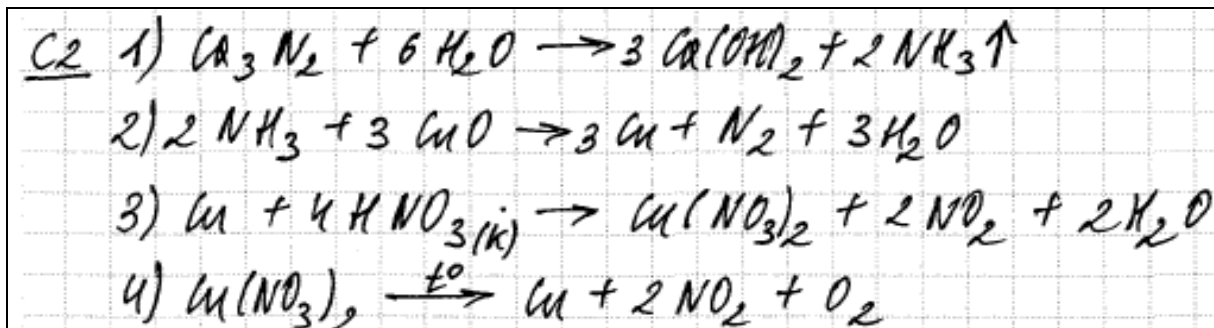 C2 1) Ca₃N₂ + 6H₂O → 3Ca(OH)₂ + 2NH₃↑
2) 2NH₃ + 3CuO → 3Cu + N₂ + 3H₂O
3) Cu + 4HNO₃(к) → Cu(NO₃)₂ + 2NO₂ + 2H₂O
4) Cu(NO₃)₂ t°→ Cu + 2NO₂ + O₂